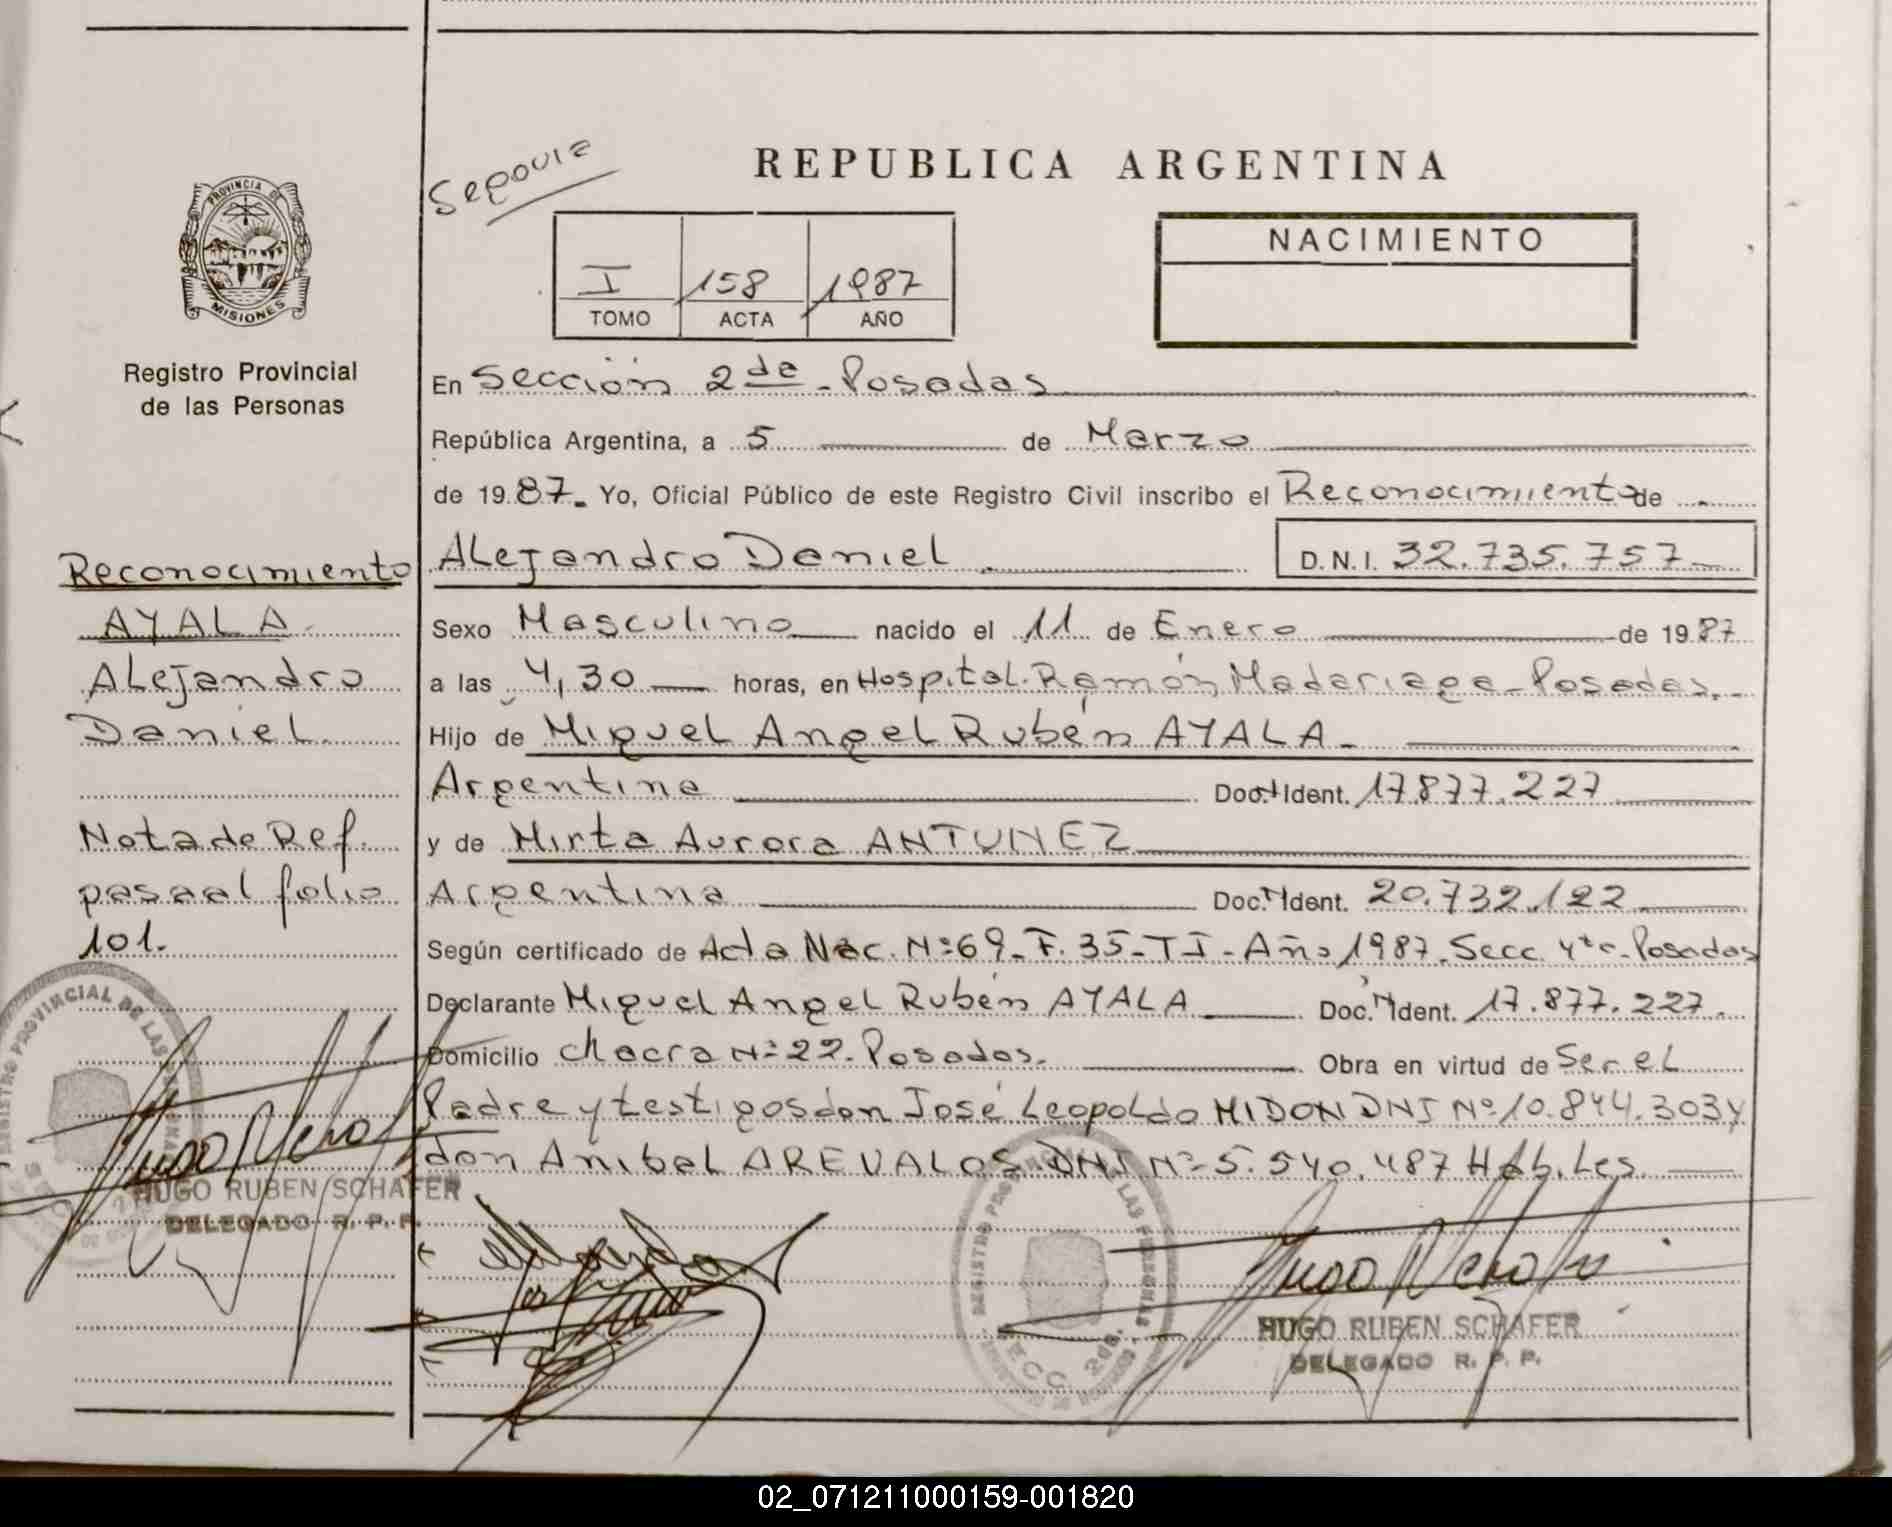 Segovia
REPUBLICA ARGENTINA
PROVINCIA DE MISIONES
I 158 1987
TOMO ACTA AÑO
NACIMIENTO
Registro Provincial
de las Personas
En Sección 2da - Posadas
República Argentina, a 5 de Marzo
de 1987. Yo, Oficial Público de este Registro Civil inscribo el Reconocimiento de
Alejandro Daniel D.N.I. 32.735.757
Sexo Masculino nacido el 11 de Enero de 1987
a las 4,30 horas, en Hospital Ramón Madariaga - Posadas.
Hijo de Miguel Angel Rubén AYALA
Argentina Doc. Ident. 17.877.227
y de Mirta Aurora ANTUNEZ
Argentina Doc. Ident. 20.732.122
Según certificado de Acta Nac. Nº 69 - F. 35 - T I - Año 1987. Secc. 4ta - Posadas
Declarante Miguel Angel Rubén AYALA Doc. Ident. 17.877.227.
Domicilio chacra Nº 22 - Posadas. Obra en virtud de Ser el
Padre y testigos don José Leopoldo MIDON DNI Nº 10.844.303 y
don Anibal AREVALOS DNI Nº 5.540.487 Háb. Les.
Reconocimiento
AYALA
Alejandro
Daniel
Nota de Ref.
pasa al folio
101.
REGISTRO PROVINCIAL DE LAS PERSONAS
HUGO RUBEN SCHAFER
DELEGADO R. P. P.
REGISTRO PROVINCIAL DE LAS PERSONAS
SECC. 2da.
HUGO RUBEN SCHAFER
DELEGADO R. P. P.
02_071211000159-001820